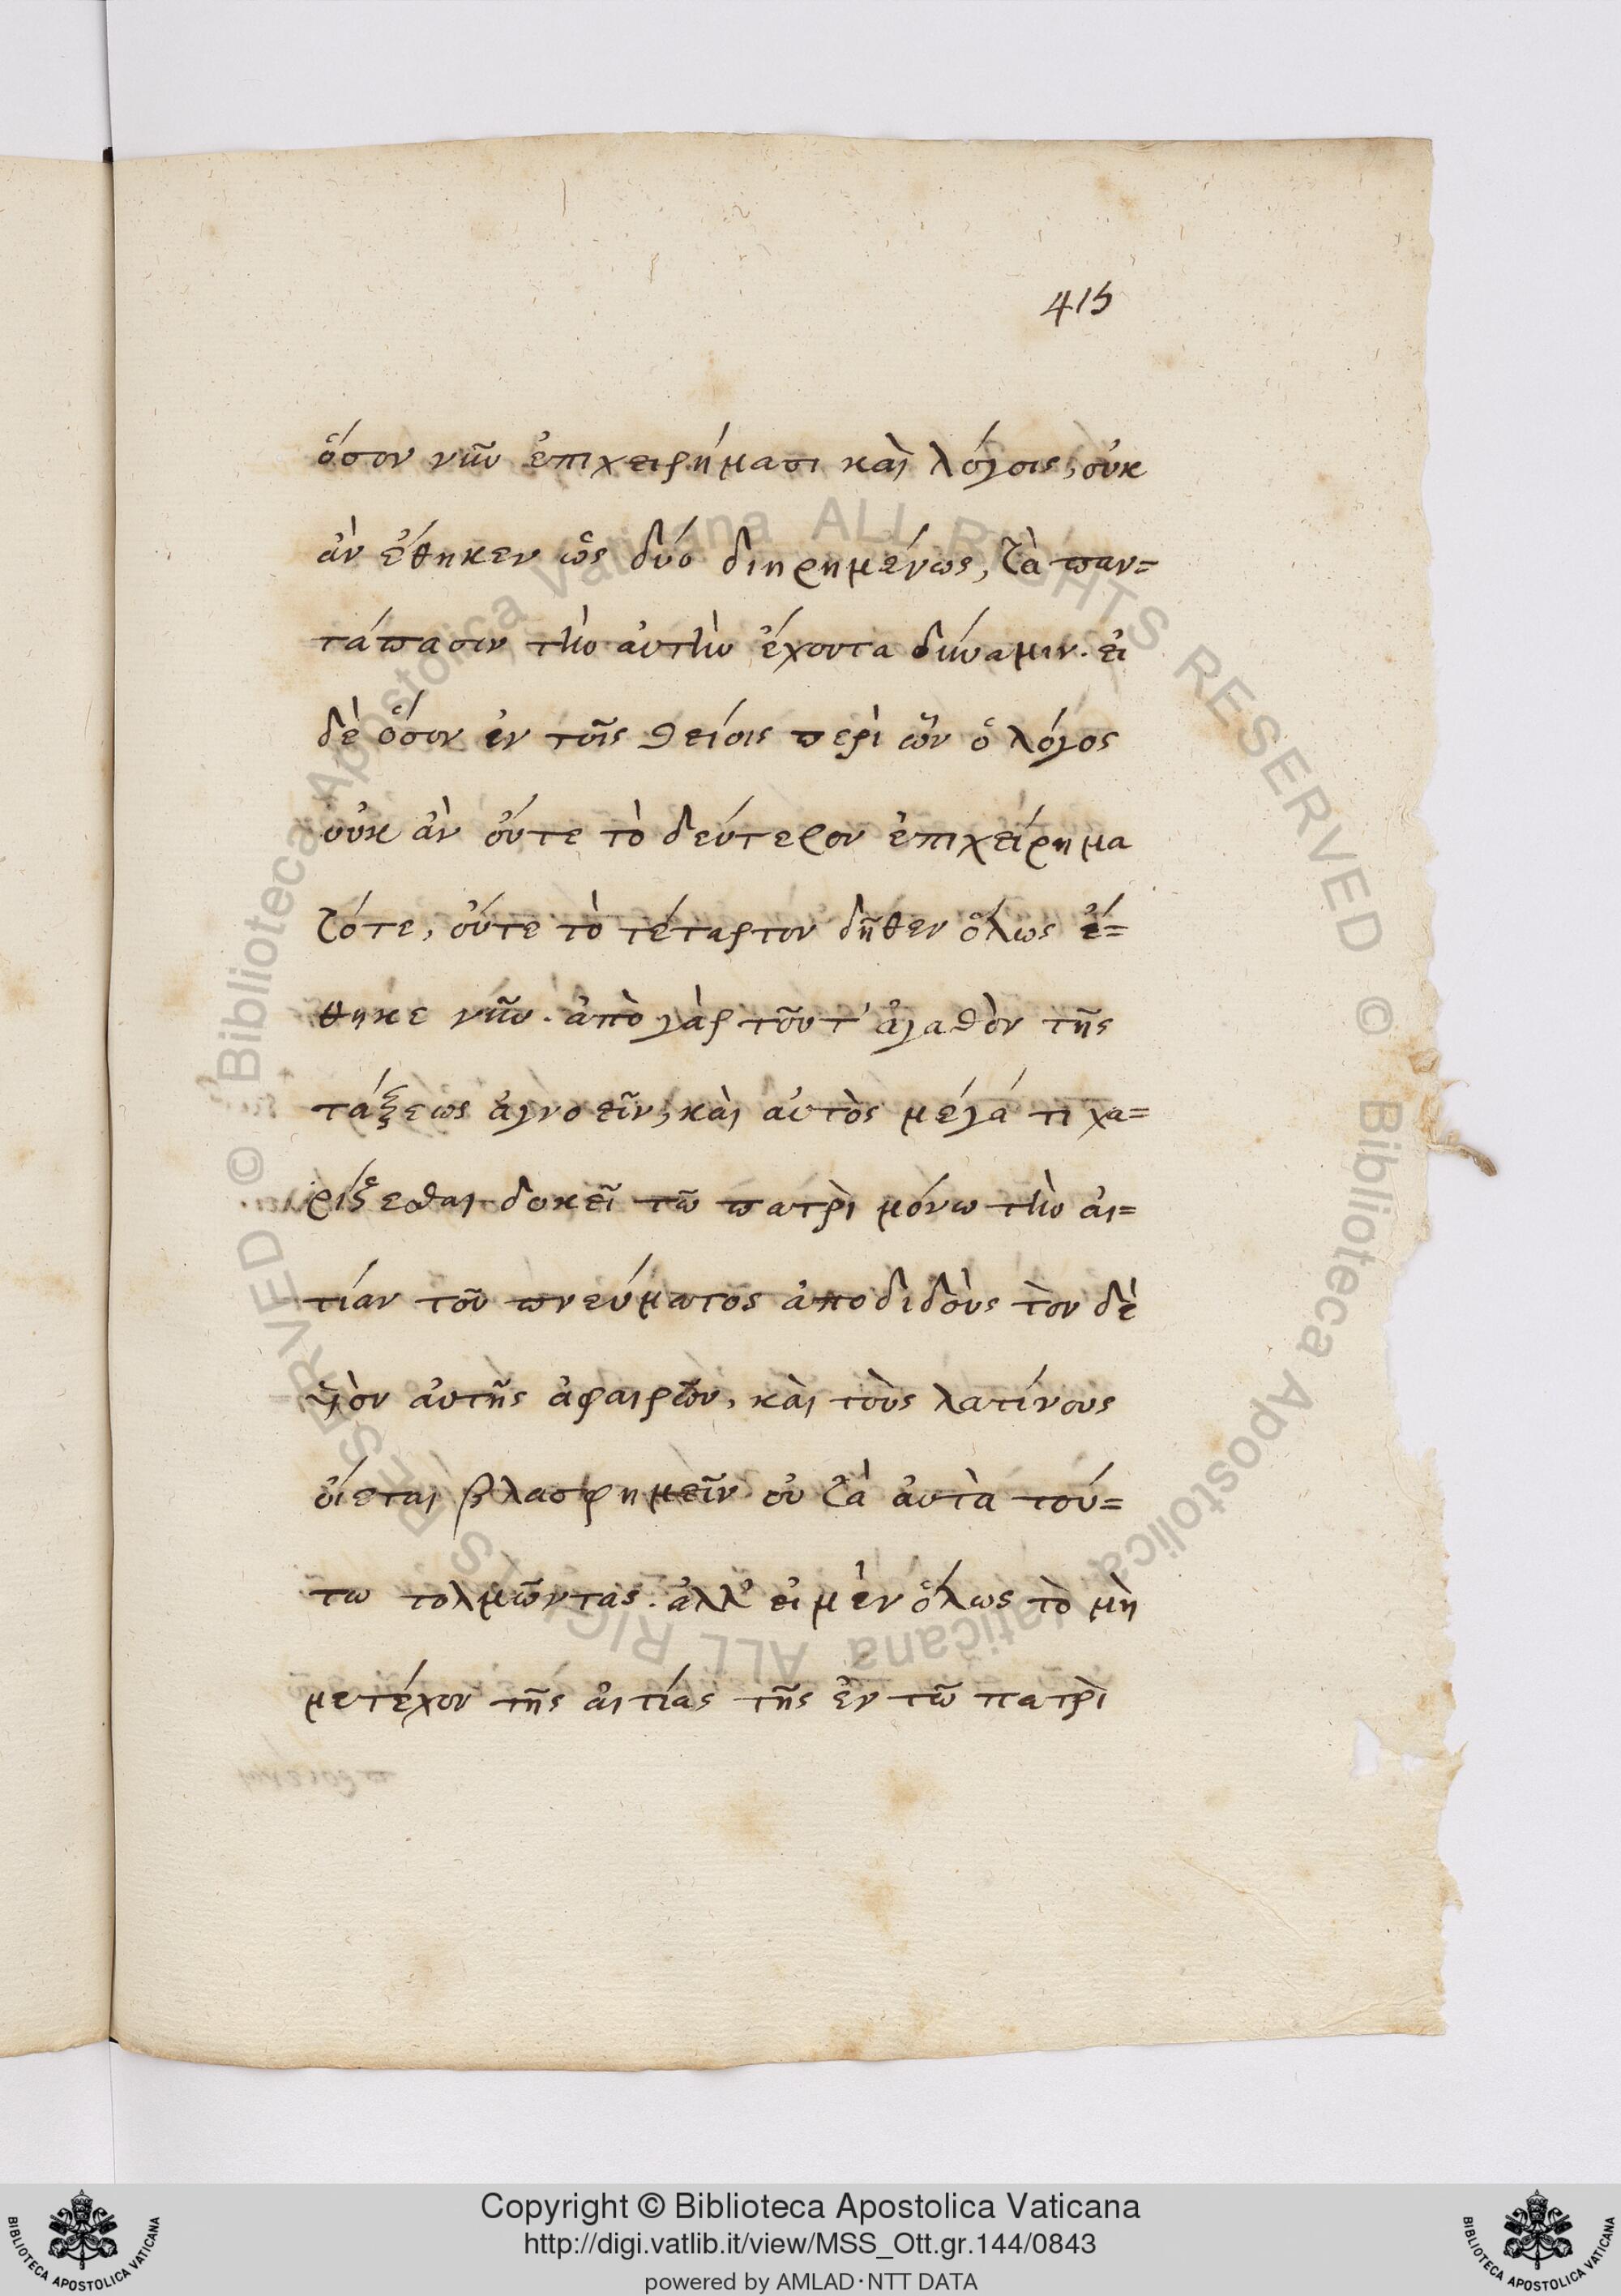 415
ὅσον νῦν ἐπιχειρήμασι καὶ λόγοις, οὐκ
ἂν ἔθηκεν ὡς δύο διηρημένως, τὰ παν=
τάπασιν τὴν ἀυτὴν ἔχοντα δύναμιν. εἰ
δὲ ὅσον ἐν τοῖς θείοις περὶ ὧν ὁ λόγος
οὐκ ἂν οὔτε τὸ δεύτερον ἐπιχείρημα
τότε, οὔτε τὸ τέταρτον δῆθεν ὅλως ἔ=
θηκε νῦν. ἀπὸ γὰρ τοῦ τ' ἀγαθὸν τῆς
τάξεως ἀγνοεῖν, καὶ ἀυτὸς μέγά τι χα=
ρίζεσθαι δοκεῖ τῶ πατρὶ μόνω τὴν ἀι=
τίαν τοῦ πνεύματος ἀποδιδοὺς τὸν δὲ
ὑιὸν ἀυτῆς ἀφαιρῶν, καὶ τοὺς λατίνους
ὀίεται βλασφημεῖν οὐ τὰ ἀυτὰ τού=
τω τολμῶντας. ἀλλ' εἰ μὲν ὅλως τὸ μὴ
μετέχον τῆς ἀιτίας τῆς ἐν τῶ πατρὶ
© Biblioteca Apostolica Vaticana ALL RIGHTS RESERVED
© Biblioteca Apostolica Vaticana ALL RIGHTS RESERVED
Copyright © Biblioteca Apostolica Vaticana
http://digi.vatlib.it/view/MSS_Ott.gr.144/0843
powered by AMLAD·NTT DATA
BIBLIOTECA APOSTOLICA VATICANA
BIBLIOTECA APOSTOLICA VATICANA